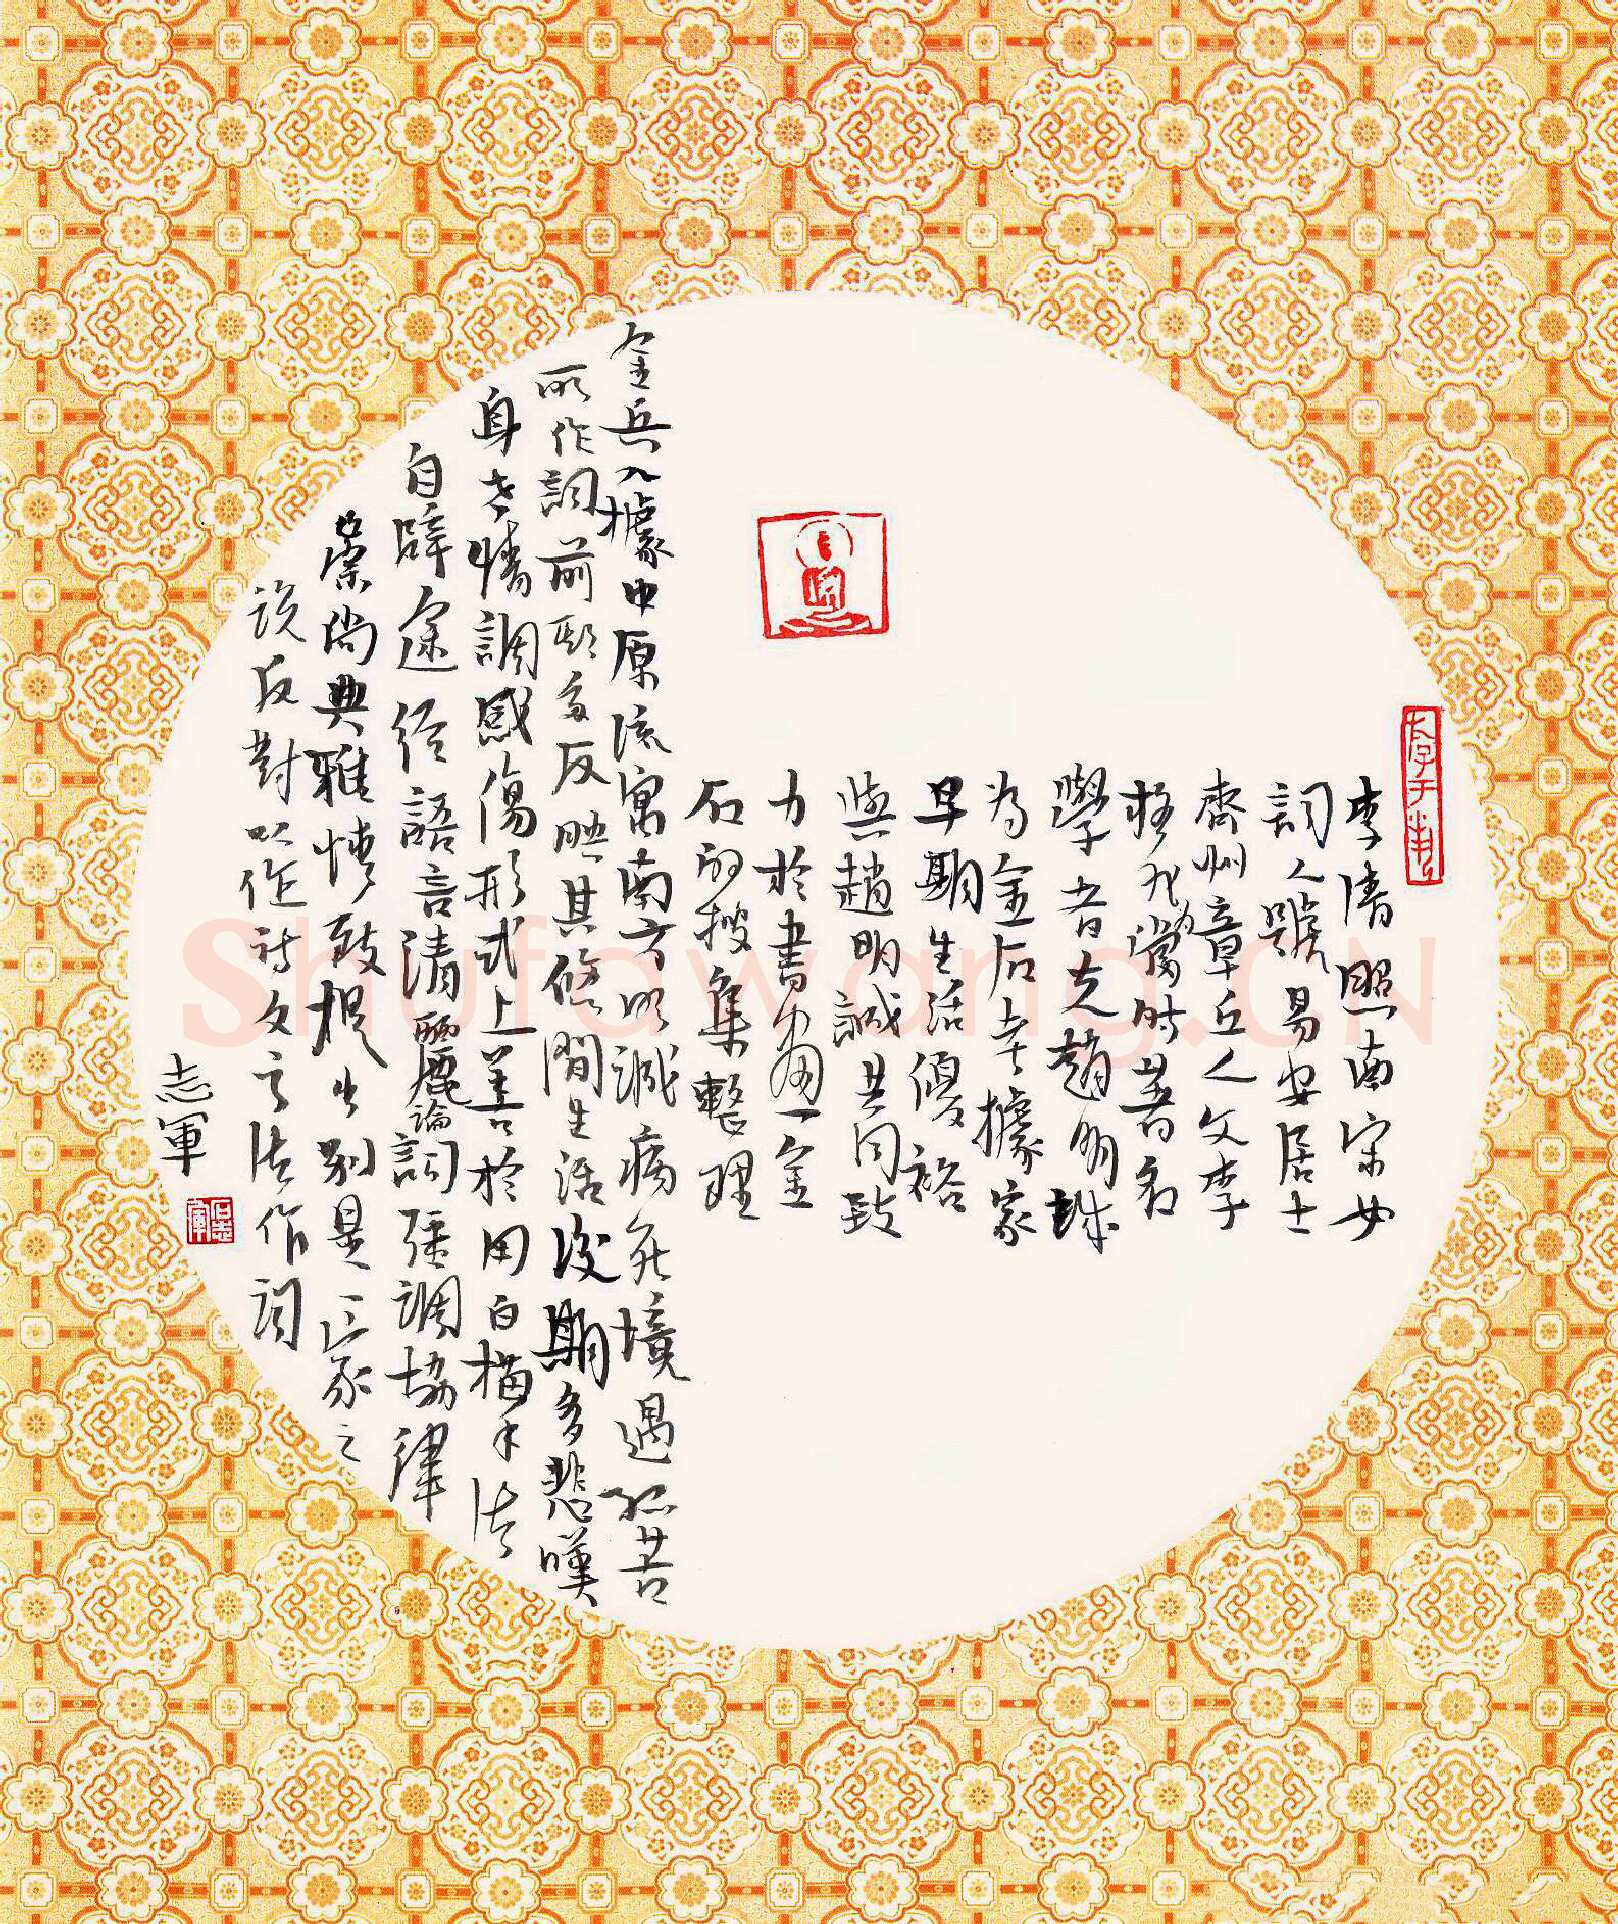 李清照南宋女
词人號易安居士
齊州章丘人父李
格非為當時著名
學者夫趙明誠
為金石考據家
早期生活優裕
與趙明誠共同致
力於書畫金
石的搜集整理
金兵入據中原流寓南方明誠病死境遇孤苦
所作詞前期多反映其悠閒生活後期多悲嘆
身世情調感傷形式上善於用白描手法
自辟途徑語言清麗論詞強調協律
崇尚典雅情致提出別是一家之
說反對以作詩文之法作詞
志軍
Shufawang.CN